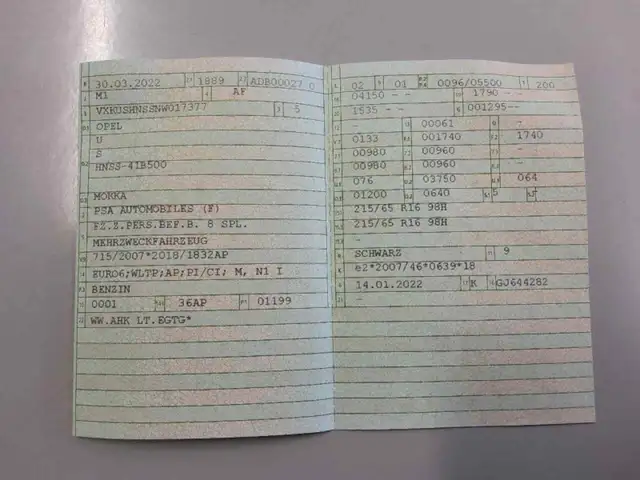 30.03.2022 1889 ADB00027 0
M1 AF
5
OPEL
U
S
HNSS-41B500
MOKKA
PSA AUTOMOBILES (F)
FZ.Z.PERS.BEF.B. 8 SPL.
MEHRZWECKFAHRZEUG
715/2007*2018/1832AP
EURO6;WLTP;AP;PI/CI; M, N1 I
BENZIN
0001 36AP 01199
WW.AHK LT.EGTG*
02 01 0096/05500 200 -
04150 - - 1790 - -
1535 - - 001295--
- 00061 -
0133 001740 1740
00980 00960 -
00980 00960 -
076 03750 064
01200 0640 5
215/65 R16 98H
215/65 R16 98H
-
SCHWARZ 9
e2*2007/46*0639*18
14.01.2022 K GJ644282
-